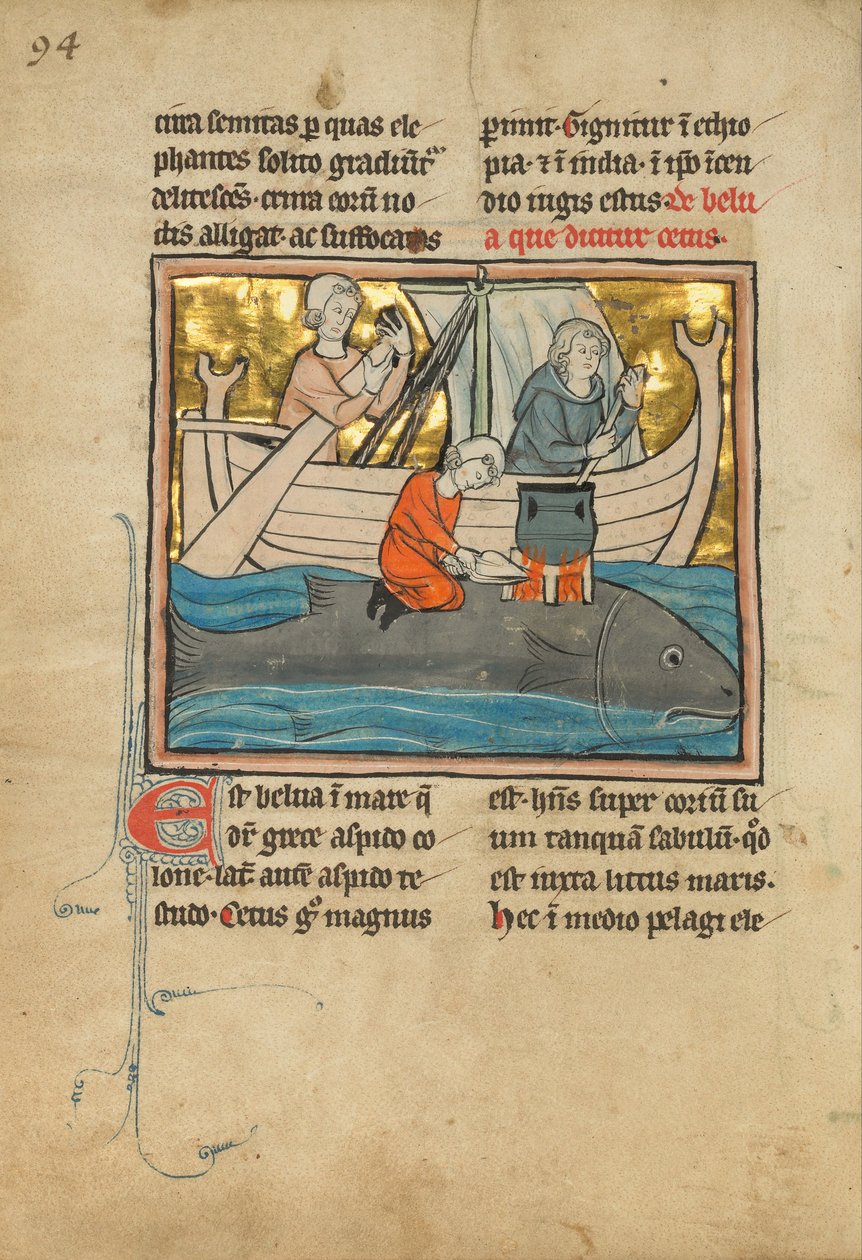 94
cira semitas p quas ele
phantes solito gradiūt᷑
delitescēs · crura eorū no
dis alligat · ac suffocatos
pimit · Gignitur ī ethio
pia · ⁊ ī india · ī ip̄o īcen
dio iugis estus · De belu
a que dicitur cetus ·
Est belua ī mare q̄
dr̄ grece aspido co
lone · lat᷑ autē aspido te
studo · Cetus gͦ magnus
est · hn̄s super coriū su
um tanquā sabulū · qͦd
est iuxta littus maris .
Hec ī medio pelagi ele